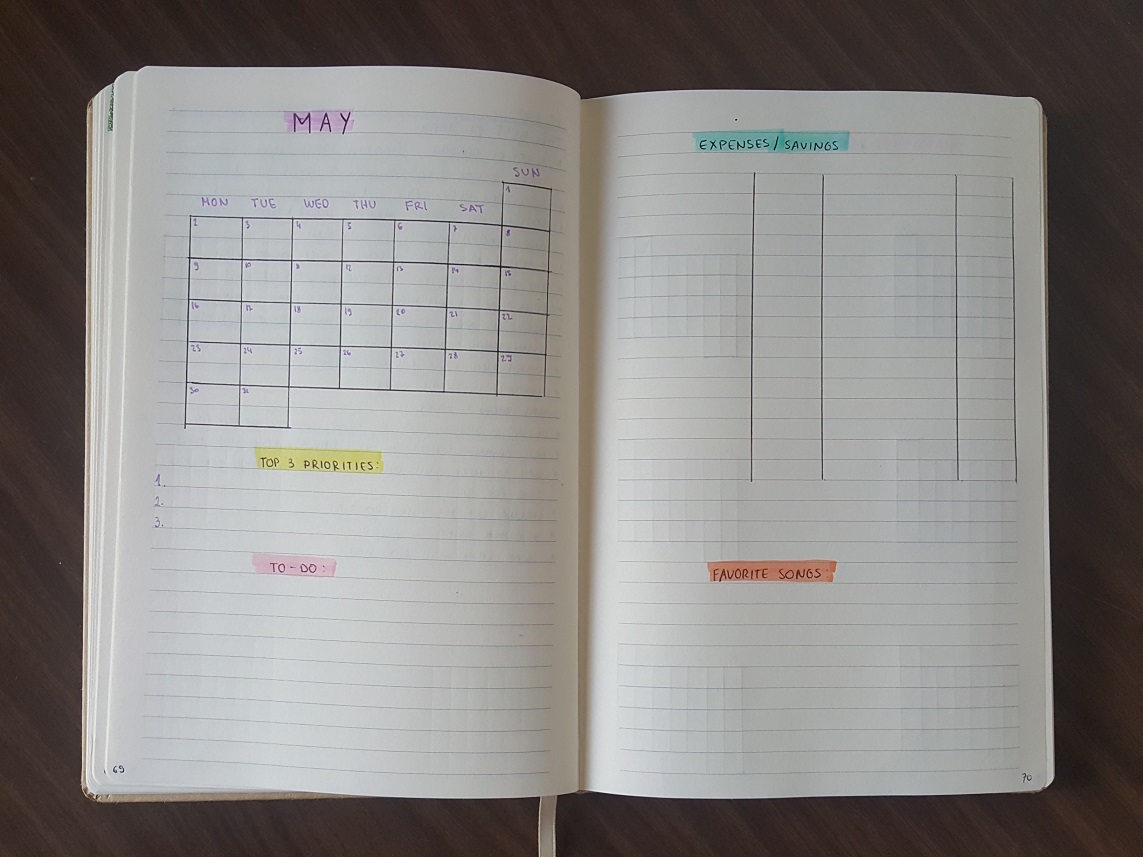 MAY
SUN
1
MON TUE WED THU FRI SAT
2 3 4 5 6 7 8
9 10 11 12 13 14 15
16 17 18 19 20 21 22
23 24 25 26 27 28 29
30 31
TOP 3 PRIORITIES:
1.
2.
3.
TO-DO:
69
EXPENSES/SAVINGS
FAVORITE SONGS:
70